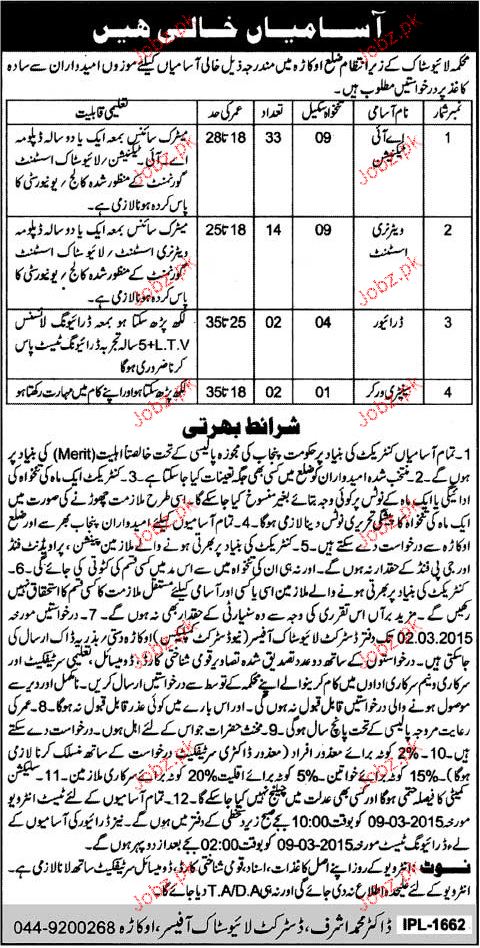 آسامیاں خالی ہیں
محکمہ لائیوسٹاک کے زیر انتظام ضلع اوکاڑہ میں مندرجہ ذیل خالی آسامیاں کیلئے موزوں امیدواران سے سادہ
کاغذ پر درخواستیں مطلوب ہیں۔
نمبر شمار نام آسامی تنخواہ سکیل تعداد عمر کی حد تعلیمی قابلیت
1 اے آئی ٹیکنیشن 09 33 18 تا 28 میٹرک سائنس بمعہ ایک یا دو سالہ ڈپلومہ
اے۔ آئی۔ ٹیکنیشن/ لائیوسٹاک اسسٹنٹ
گورنمنٹ کے منظور شدہ کالج/ یونیورسٹی کا
پاس کردہ ہونا لازمی ہے۔
2 ویٹرنری اسسٹنٹ 09 14 18 تا 25 میٹرک سائنس بمعہ ایک یا دو سالہ ڈپلومہ
ویٹرنری اسسٹنٹ/ لائیوسٹاک اسسٹنٹ
گورنمنٹ کے منظور شدہ کالج/ یونیورسٹی کا
پاس کردہ ہونا لازمی ہے۔
3 ڈرائیور 04 02 25 تا 35 لکھ پڑھ سکتا ہو بمعہ ڈرائیونگ لائسنس
L.T.V+5 سالہ تجربہ ڈرائیونگ ٹیسٹ پاس
کرنا ضروری ہوگا
4 سینٹری ورکر 01 02 18 تا 35 لکھ پڑھ سکتا ہو اور اپنے کام میں مہارت رکھتا ہو
شرائط بھرتی
1- تمام آسامیاں کنٹریکٹ کی بنیاد پر حکومت پنجاب کی مجوزہ پالیسی کے تحت خالصتاً اہلیت (Merit) کی بنیاد پر
ہوں گے۔ 2- منتخب شدہ امیدواران کو ضلع میں کسی بھی جگہ تعینات کیا جا سکتا ہے۔ 3- کنٹریکٹ ایک ماہ کی تنخواہ کی
ادائیگی یا ایک ماہ کے نوٹس پر کوئی وجہ بتائے بغیر منسوخ کیا جا سکے گا۔ اسی طرح ملازمت چھوڑنے کی صورت میں
ایک ماہ کی تنخواہ کا پیشگی تحریری نوٹس دینا لازمی ہوگا۔ 4- تمام آسامیوں کیلئے امیدواران پنجاب بھر سے اور ضلع
اوکاڑہ سے درخواست دے سکتے ہیں۔ 5- کنٹریکٹ کی بنیاد پر بھرتی ہونے والے ملازمین پینشن، پراویڈنٹ فنڈ
اور جی پی فنڈ کے حقدار نہ ہوں گے۔ اور نہ ہی ان کی تنخواہ میں سے اس مد میں کسی قسم کی کٹوتی کی جائے گی۔ 6-
کنٹریکٹ کی بنیاد پر بھرتی ہونے والے ملازمین اسی یا کسی اور آسامی کیلئے مستقل ملازمت کا کسی قسم کا استحقاق نہیں
رکھیں گے۔ مزید برآں اس تقرری کی وجہ سے وہ سنیارٹی کے حقدار بھی نہ ہوں گے۔ 7- درخواستیں مورخہ
02.03.2015 تک دفتر ڈسٹرکٹ لائیوسٹاک آفیسر (نیو ڈسٹرکٹ کمپلیکس) اوکاڑہ دستی/ بذریعہ ڈاک ارسال کی
جا سکتی ہیں۔ درخواستوں کے ساتھ دو عدد تصدیق شدہ تصاویر قومی شناختی کارڈ، ڈومیسائل، تعلیمی سرٹیفکیٹ اور
سرکاری و نیم سرکاری اداروں میں کام کرنیوالے اپنے محکمہ کے توسط سے درخواستیں ارسال کریں۔ نامکمل اور دیر سے
موصول ہونے والی درخواستیں قابل قبول نہ ہوں گی۔ اور اس بارے میں کوئی عذر قابل قبول نہ ہوگا۔ 8- عمر کی
رعایت مروجہ پالیسی کے تحت پانچ سال ہوگی۔ 9- مخنث حضرات جو جس کے لئے اہل ہوں۔ درخواست دے سکتے
ہیں۔ 10- 2% کوٹہ برائے معذور افراد (معذور ڈاکٹری سرٹیفکیٹ درخواست کے ساتھ منسلک کرنا لازمی
ہوگا)- 15% کوٹہ برائے خواتین- 5% کوٹہ برائے اقلیت 20% کوٹہ برائے سرکاری ملازمین۔ 11- سلیکشن
کمیٹی کا فیصلہ حتمی ہوگا اور کسی بھی عدالت میں چیلنج نہیں کیا جا سکے گا۔ 12- تمام آسامیوں کے لئے ٹیسٹ انٹرویو
مورخہ 09-03-2015 کو بوقت 10:00 بجے صبح زیر دستخطی کے دفتر میں ہوں گے۔ نیز ڈرائیور کی آسامیوں کے
لئے ڈرائیونگ ٹیسٹ مورخہ 09-03-2015 کو بوقت 02:00 بجے بعد از دوپہر ہوں گے۔
نوٹ: انٹرویو کے روز اپنے اصل کاغذات، اسناد، قومی شناختی کارڈ، ڈومیسائل سرٹیفکیٹ ساتھ لانا لازمی ہے۔
انٹرویو کے لئے علیحدہ اطلاع نہ دی جائے گی اور نہ ہی T.A/D.A دیا جائے گا۔
IPL-1662 ڈاکٹر محمد اشرف، ڈسٹرکٹ لائیوسٹاک آفیسر، اوکاڑہ 044-9200268
Jobz.pk